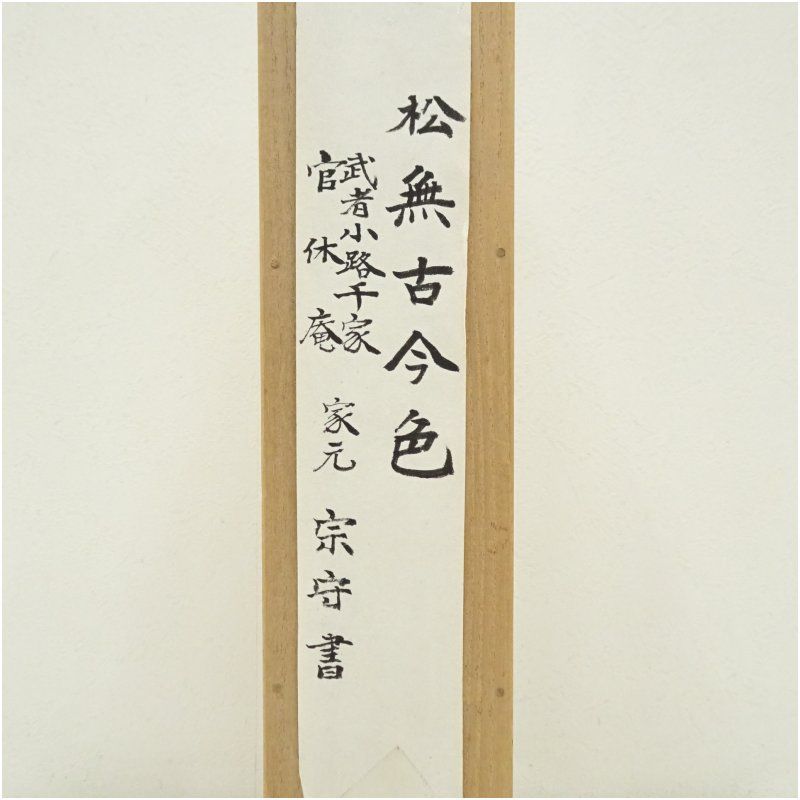 松無古今色
武者小路千家
官休庵
家元
宗守書